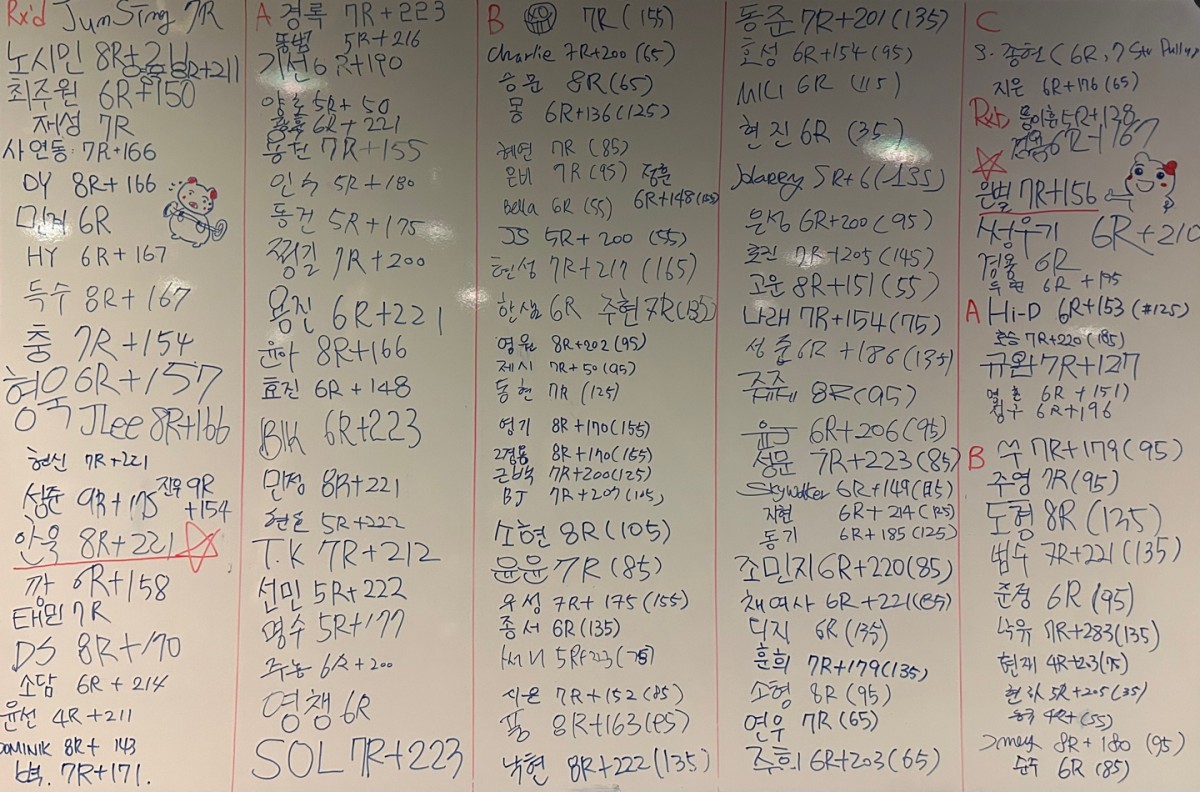 Rx'd JumSting 7R
노시인 8R+211
8R+211
최주원 6R+150
재성 7R
사연동 7R+166
DY 8R+166
민계 6R
HY 6R+167
득수 8R+167
충 7R+154
형욱 6R+157
JLee 8R+166
현신 7R+221
9R+175
진우 9R+154
안욱 8R+221
깡 6R+158
태민 7R
DS 8R+170
소담 6R+214
윤선 4R+211
DOMINIK 8R+143
벽. 7R+171.
A 경록 7R+223
5R+216
기선 6R+190
5R+50
6R+221
7R+155
인숙 5R+180
동건 5R+175
찡길 7R+200
용진 6R+221
윤아 8R+166
효진 6R+148
BK 6R+223
민정 8R+221
5R+222
T.K 7R+212
선민 5R+222
명수 5R+177
주농 6R+200
영챙 6R
SOL 7R+223
B 7R(155)
Charlie 7R+200(65)
승문 8R(65)
몽 6R+136(125)
혜연 7R(85)
은비 7R(95)
정훈 6R+148(135)
Bella 6R(55)
JS 5R+200(55)
현성 7R+217(165)
한샘 6R
주현 7R(135)
영원 8R+202(95)
제시 7R+50(95)
동현 7R(125)
영기 8R+170(155)
2경동 8R+170(155)
근백 7R+200(125)
BJ 7R+207(105)
소현 8R(105)
윤윤 7R(85)
우성 7R+175(155)
종서 6R(135)
써니 5R+223(75)
시은 7R+152(85)
품 8R+163(85)
낙현 8R+222(135)
동준 7R+201(135)
효성 6R+154(95)
MICI 6R(115)
현진 6R(35)
5R+6(135)
은성 6R+200(95)
7R+205(145)
고운 8R+151(55)
나래 7R+154(75)
성준 6R+186(135)
쥬쥬 8R(95)
6R+206(95)
성문 7R+223(85)
Skywalker 6R+149(115)
지현 6R+214(125)
동기 6R+185(125)
조민지 6R+220(85)
채여사 6R+221(85)
딕지 6R(135)
훈희 7R+179(135)
소형 8R(95)
연우 7R(65)
주희 6R+203(65)
C
S. 종헌(6R, 7
지은 6R+176(65)
Rx'd 5R+128
6R+167
은별 7R+156
서우기 6R+210
경용 6R
우현 6R+195
A Hi-D 6R+153(#125)
호승 7R+220(185)
규완 7R+127
6R+151)
정구 6R+196
B 수 7R+179(95)
주영 7R(95)
도형 8R(135)
범수 7R+221(135)
준정 6R(95)
낙유 7R+283(135)
현재 4R+203(75)
5R+205(35)
4R+(55)
8R+180(95)
순주 6R(85)